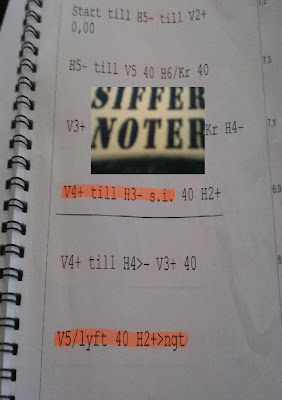 Start till H5- till V2+
0,00
7,3
H5- till V5 40 H6/Kr 40
7,1
V3+ SIFFER NOTER Kr H4-
V4+ till H3- s.i. 40 H2+
6,9
V4+ till H4>- V3+ 40
V5/lyft 40 H2+>ngt